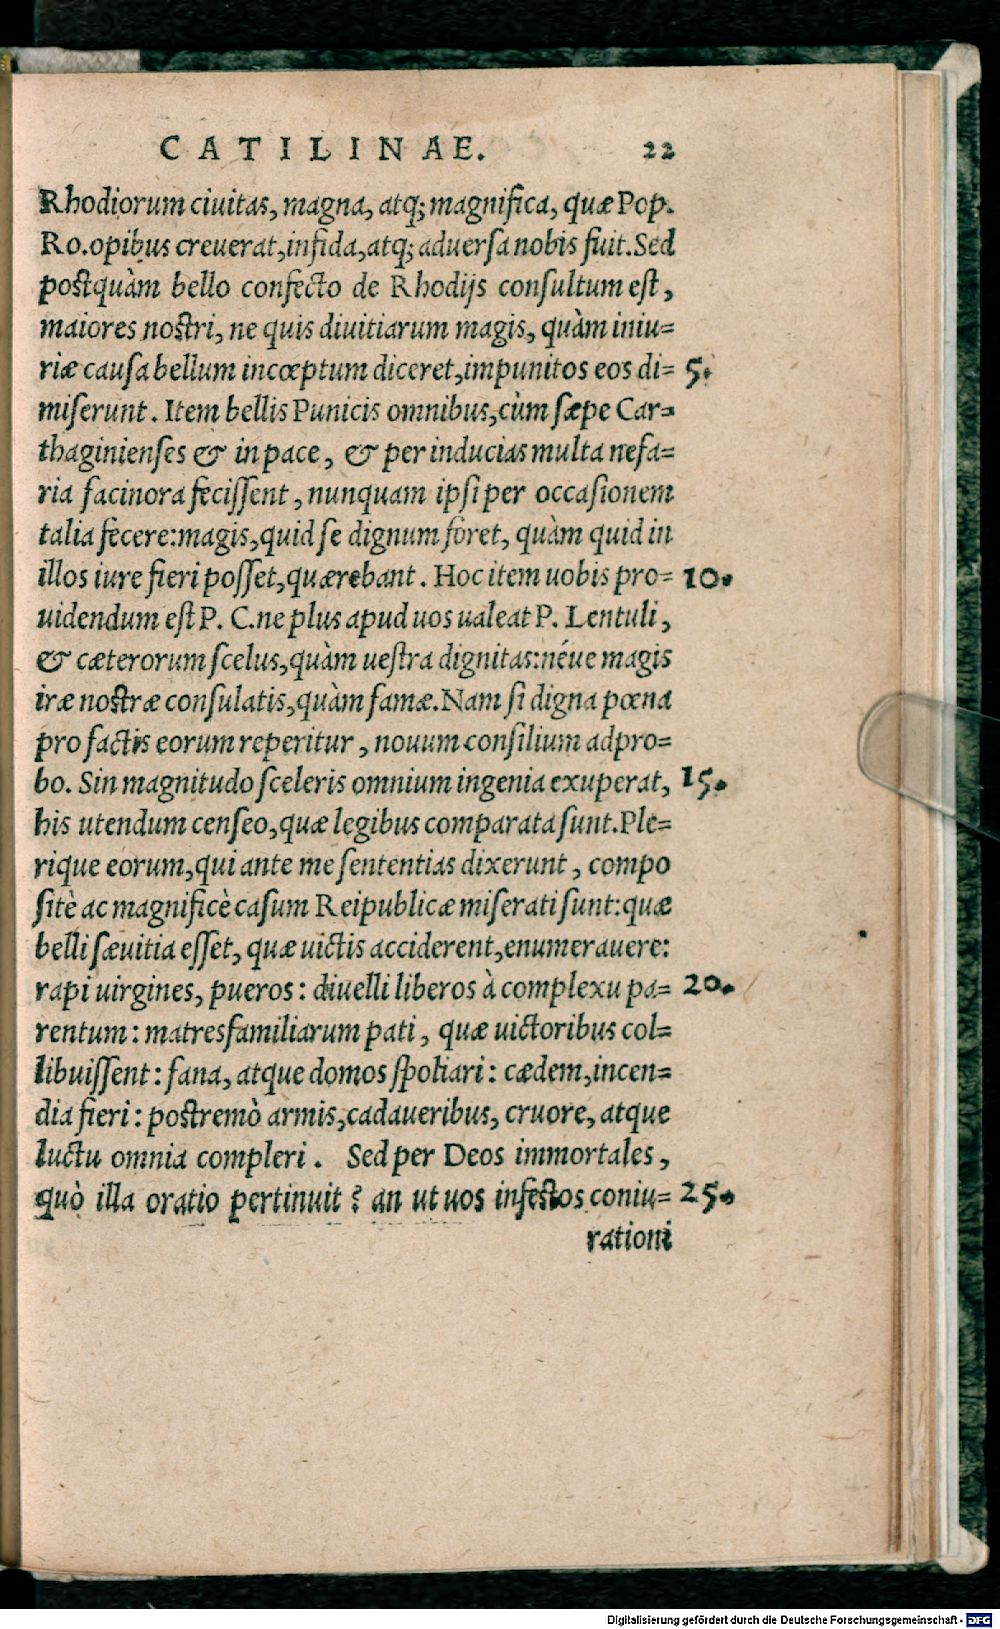 CATILINAE. 22
Rhodiorum ciuitas, magna, atq; magnifica, quæ Pop.
Ro. opibus creuerat, infida, atq; aduersa nobis fuit. Sed
postquàm bello confecto de Rhodijs consultum est,
maiores nostri, ne quis diuitiarum magis, quàm iniu=
riæ causa bellum incœptum diceret, impunitos eos di= 5.
miserunt. Item bellis Punicis omnibus, cùm sæpe Car=
thaginienses & in pace, & per inducias multa nefa=
ria facinora fecissent, nunquam ipsi per occasionem
talia fecere: magis, quid se dignum foret, quàm quid in
illos iure fieri posset, quærebant. Hoc item uobis pro= 10.
uidendum est P. C. ne plus apud uos ualeat P. Lentuli,
& cæterorum scelus, quàm uestra dignitas: néue magis
iræ nostræ consulatis, quàm famæ. Nam si digna pœna
pro factis eorum reperitur, nouum consilium adpro=
bo. Sin magnitudo sceleris omnium ingenia exuperat, 15.
his utendum censeo, quæ legibus comparata sunt. Ple=
rique eorum, qui ante me sententias dixerunt, compo
sitè ac magnificè casum Reipublicæ miserati sunt: quæ
belli sæuitia esset, quæ uictis acciderent, enumerauere:
rapi uirgines, pueros: diuelli liberos à complexu pa= 20.
rentum: matresfamiliarum pati, quæ uictoribus col=
libuissent: fana, atque domos spoliari: cædem, incen=
dia fieri: postremò armis, cadaueribus, cruore, atque
luctu omnia compleri. Sed per Deos immortales,
quò illa oratio pertinuit? an ut uos infestos coniu= 25.
rationi
Digitalisierung gefördert durch die Deutsche Forschungsgemeinschaft - DFG